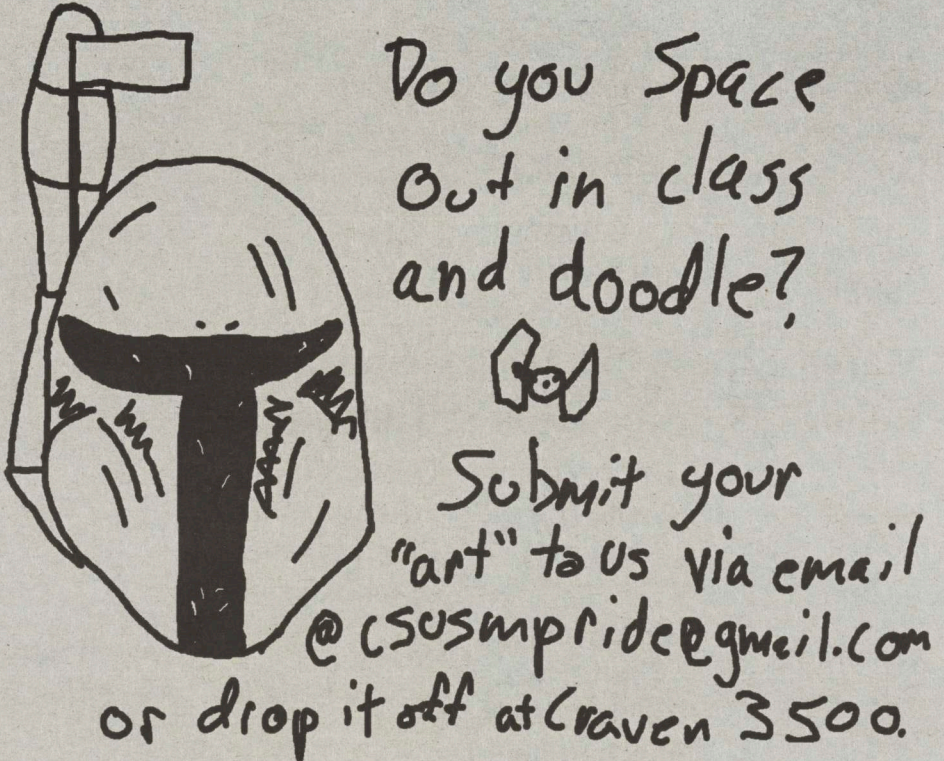 Do you Space
Out in class
and doodle?
Submit your
"art" to us via email
@csusmpride@gmail.com
or drop it off at Craven 3500.